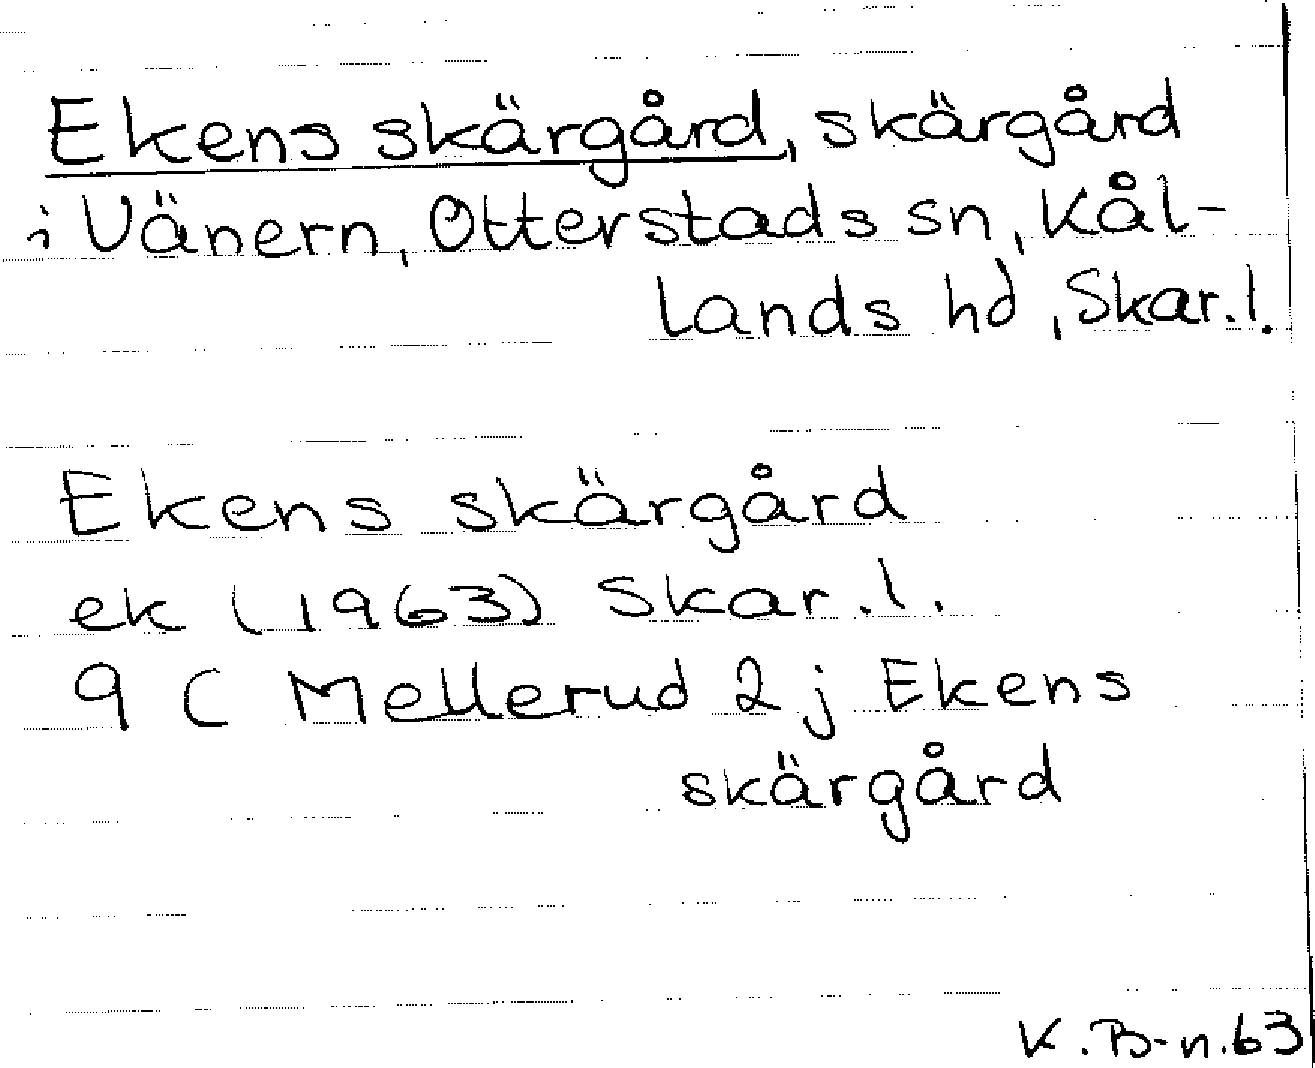 Ekens skärgård, skärgård
i Vänern, Otterstads sn, Kål-
lands hd, Skar.l.
Ekens skärgård
ek (1963) Skar.l.
9 C Mellerud 2 j Ekens
skärgård
K.B-n.63